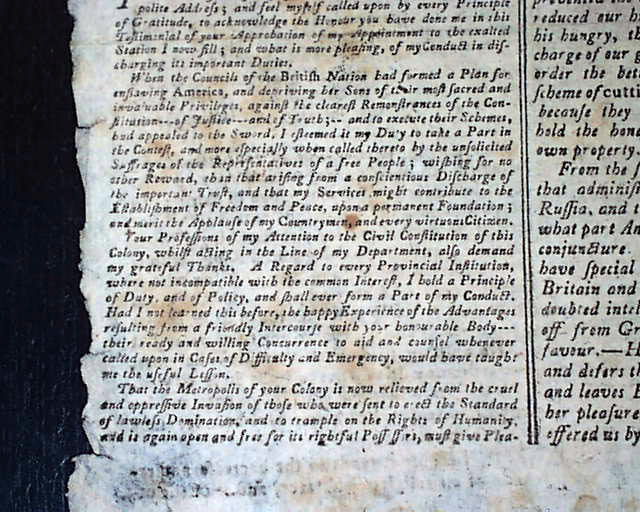 polite Address; and feel myself called upon by every Principle
of Gratitude, to acknowledge the Honour you have done me in this
Testimonial of your Approbation of my Appointment to the exalted
Station I now fill; and what is more pleasing, of my Conduct in dis-
charging its important Duties.
When the Councils of the British Nation had formed a Plan for
enslaving America, and depriving her Sons of their most sacred and
invaluable Privileges, against the clearest Remonstrances of the Con-
stitution---of Justice---and of Truth;--and to execute their Schemes,
had appealed to the Sword, I esteemed it my Duty to take a Part in
the Contest, and more especially when called thereto by the unsolicited
Suffrages of the Representatives of a free People; wishing for no
other Reward, than that arising from a conscientious Discharge of
the important Trust, and that my Services might contribute to the
Establishment of Freedom and Peace, upon a permanent Foundation;
and merit the Applause of my Countrymen, and every virtuous Citizen.
Your Professions of my Attention to the Civil Constitution of this
Colony, whilst acting in the Line of my Department, also demand
my grateful Thanks. A Regard to every Provincial Institution,
where not incompatible with the common Interest, I hold a Principle
of Duty, and of Policy, and shall ever form a Part of my Conduct.
Had I not learned this before, the happy Experience of the Advantages
resulting from a friendly Intercourse with your honourable Body---
their ready and willing Concurrence to aid and counsel whenever
called upon in Cases of Difficulty and Emergency, would have taught
me the useful Lesson.
That the Metropolis of your Colony is now relieved from the cruel
and oppressive Invasion of those who were sent to erect the Standard
of lawless Domination, and to trample on the Rights of Humanity,
and is again open and free for its rightful Possessors, must give Plea-
reduced our
his hungry,
charge of our
order the
scheme of cutti
because they
hold the
own property.
From the
that
Russia, and
what part
conjuncture.
have special
Britain and
doubted
off from
favour.—
and defers
and leaves
her pleasure
offered us by